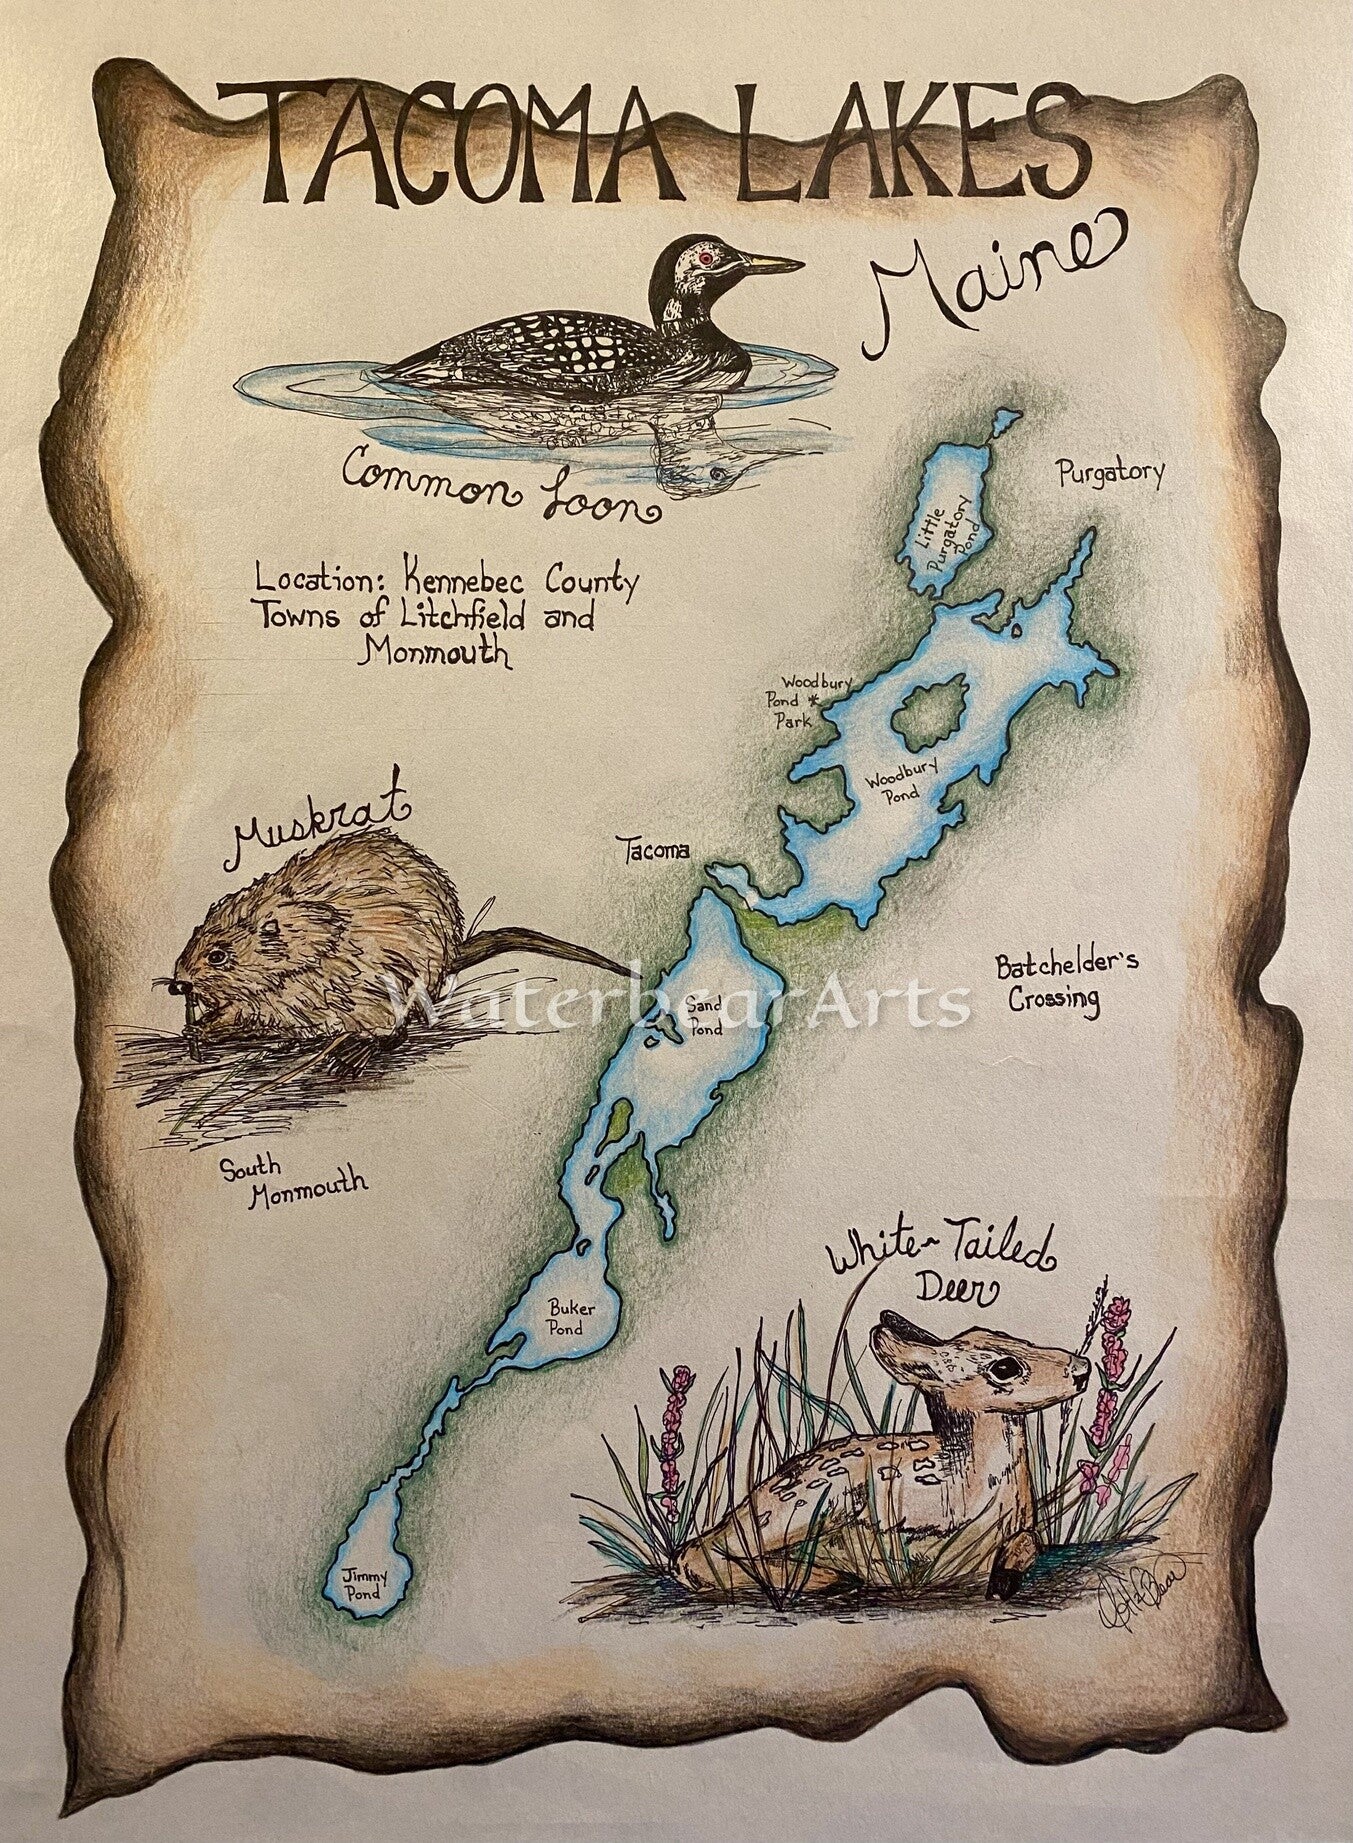 TACOMA LAKES
Maine
Common Loon
Purgatory
Little
Purgatory
Pond
Location: Kennebec County
Towns of Litchfield and
Monmouth
Woodbury
Pond *
Park
Woodbury
Pond
Muskrat
Tacoma
Batchelder's
Crossing
Sand
Pond
WaterbearArts
South
Monmouth
White-Tailed
Deer
Buker
Pond
Jimmy
Pond